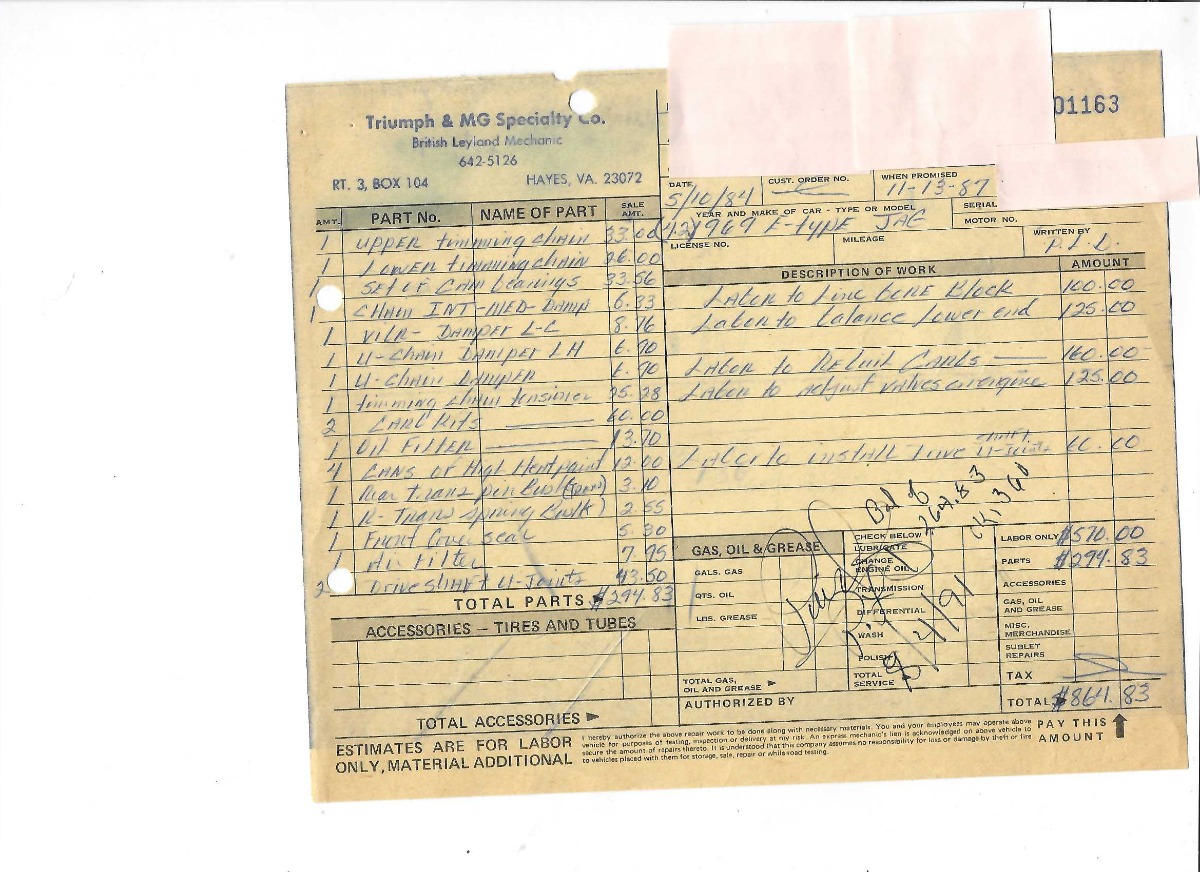 01163
Triumph & MG Specialty Co.
British Leyland Mechanic
642-5126
RT. 3, BOX 104 HAYES, VA. 23072
DATE 5/10/84
CUST. ORDER NO.
WHEN PROMISED 11-13-87
YEAR AND MAKE OF CAR - TYPE OR MODEL
1969 E-type JAG
SERIAL
MOTOR NO.
LICENSE NO.
MILEAGE
WRITTEN BY
AMT. PART No. NAME OF PART SALE AMT.
1 UPPER timming chain 33.00
1 LOWER timming chain 26.00
1 SET OF CAM bearings 33.56
1 CHAIN INT-MED-DAMP 6.33
1 DAMPER L-C 8.76
1 U-Chain DAMPER LH 6.90
1 U-Chain DAMPER 6.90
1 timming chain tensioner 25.28
2 CARB Kits 60.00
1 OIL FILTER 13.70
4 CANS OF High Heat paint 12.00
1 Rear trans pin 3.10
1 R-Trans spring 2.55
1 Front Cover seal 5.30
1 Air Filter 7.95
2 Drive SHAFT U-Joints 43.50
TOTAL PARTS $294.83
DESCRIPTION OF WORK AMOUNT
LABOR to Line BORE Block 100.00
Labor to balance lower end 125.00
Labor to Rebuild CARBS 160.00
Labor to adjust valves 125.00
Labor to install Drive SHAFT U-Joints 60.00
Bal of
262.83
CK. 1360
8/21/91
ACCESSORIES - TIRES AND TUBES
TOTAL ACCESSORIES
GAS, OIL & GREASE
GALS. GAS
QTS. OIL
LBS. GREASE
TOTAL GAS, OIL AND GREASE
CHECK BELOW
LUBRICATE
CHANGE ENGINE OIL
TRANSMISSION
DIFFERENTIAL
WASH
POLISH
TOTAL SERVICE
AUTHORIZED BY
LABOR ONLY $570.00
PARTS $294.83
ACCESSORIES
GAS, OIL AND GREASE
MISC. MERCHANDISE
SUBLET REPAIRS
TAX
TOTAL $864.83
PAY THIS AMOUNT
ESTIMATES ARE FOR LABOR
ONLY, MATERIAL ADDITIONAL
I hereby authorize the above repair work to be done along with necessary materials. You and your employees may operate above
vehicle for purposes of testing, inspection or delivery at my risk. An express mechanic's lien is acknowledged on above vehicle to
secure the amount of repairs thereto. It is understood that this company assumes no responsibility for loss or damage by theft or fire
to vehicles placed with them for storage, sale, repair or while road testing.